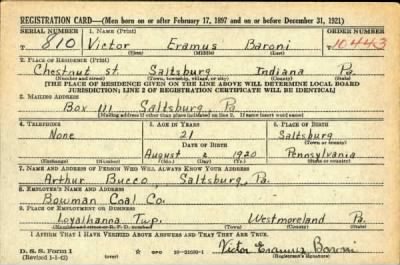 REGISTRATION CARD—(Men born on or after February 17, 1897 and on or before December 31, 1921)
SERIAL NUMBER 1. NAME (Print) ORDER NUMBER
810 Victor Eramus Baroni 10443
(First) (Middle) (Last)
2. PLACE OF RESIDENCE (Print)
Chestnut st. Saltsburg Indiana Pa.
(Number and street) (Town, township, village, or city) (County) (State)
[THE PLACE OF RESIDENCE GIVEN ON THE LINE ABOVE WILL DETERMINE LOCAL BOARD
JURISDICTION; LINE 2 OF REGISTRATION CERTIFICATE WILL BE IDENTICAL]
3. MAILING ADDRESS
Box 111 Saltsburg, Pa.
[Mailing address if other than place indicated on line 2. If same insert word same]
4. TELEPHONE 5. AGE IN YEARS 6. PLACE OF BIRTH
None 21 Saltsburg
DATE OF BIRTH (Town or county)
August 2 1920 Pennsylvania
(Exchange) (Number) (Mo.) (Day) (Yr.) (State or country)
7. NAME AND ADDRESS OF PERSON WHO WILL ALWAYS KNOW YOUR ADDRESS
Arthur Bucco, Saltsburg, Pa.
8. EMPLOYER'S NAME AND ADDRESS
Bowman Coal Co.
9. PLACE OF EMPLOYMENT OR BUSINESS
Loyalhanna Twp. Westmoreland Pa.
(Number and street or R. F. D. number) (Town) (County) (State)
I AFFIRM THAT I HAVE VERIFIED ABOVE ANSWERS AND THAT THEY ARE TRUE.
D. S. S. Form 1 Victor Eramus Baroni
(Revised 1-1-42) (over) GPO 16-21630-1 (Registrant's signature)